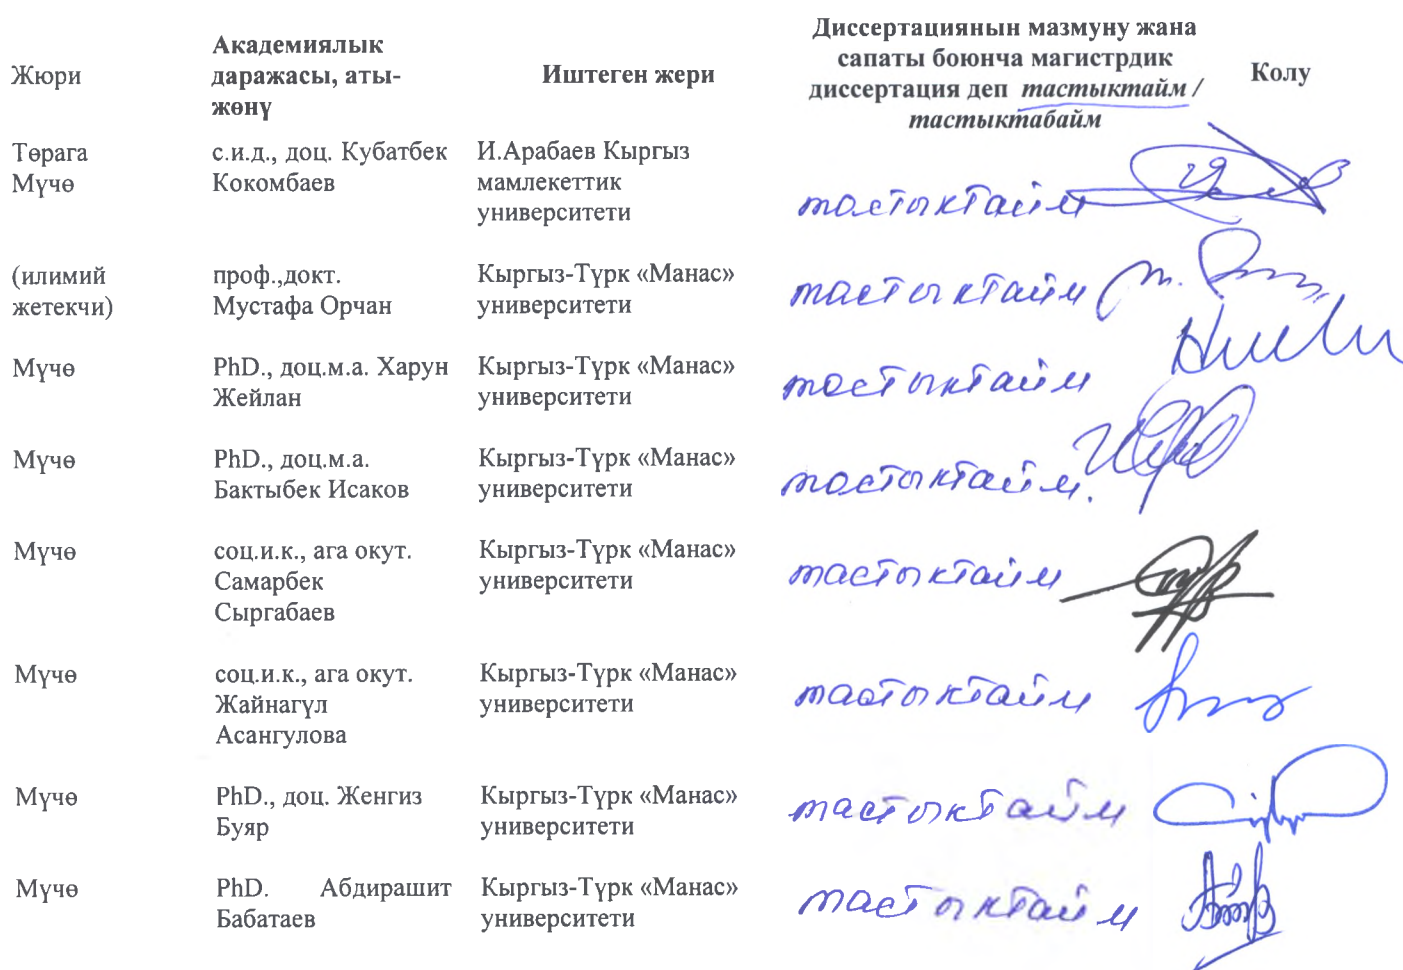 Жюри
Академиялык
даражасы, аты-
жөнү
Иштеген жери
Диссертациянын мазмуну жана
сапаты боюнча магистрдик
диссертация деп тастыктайм /
тастыктабайм
Колу
Төрага
Мүчө
с.и.д., доц. Кубатбек
Кокомбаев
И.Арабаев Кыргыз
мамлекеттик
университети
тастыктайм
(илимий
жетекчи)
проф.,докт.
Мустафа Орчан
Кыргыз-Түрк «Манас»
университети
тастыктайм
Мүчө
PhD., доц.м.а. Харун
Жейлан
Кыргыз-Түрк «Манас»
университети
тастыктайм
Мүчө
PhD., доц.м.а.
Бактыбек Исаков
Кыргыз-Түрк «Манас»
университети
тастыктайм.
Мүчө
соц.и.к., ага окут.
Самарбек
Сыргабаев
Кыргыз-Түрк «Манас»
университети
тастыктайм
Мүчө
соц.и.к., ага окут.
Жайнагүл
Асангулова
Кыргыз-Түрк «Манас»
университети
тастыктайм
Мүчө
PhD., доц. Женгиз
Буяр
Кыргыз-Түрк «Манас»
университети
тастыктайм
Мүчө
PhD. Абдирашит
Бабатаев
Кыргыз-Түрк «Манас»
университети
тастыктайм